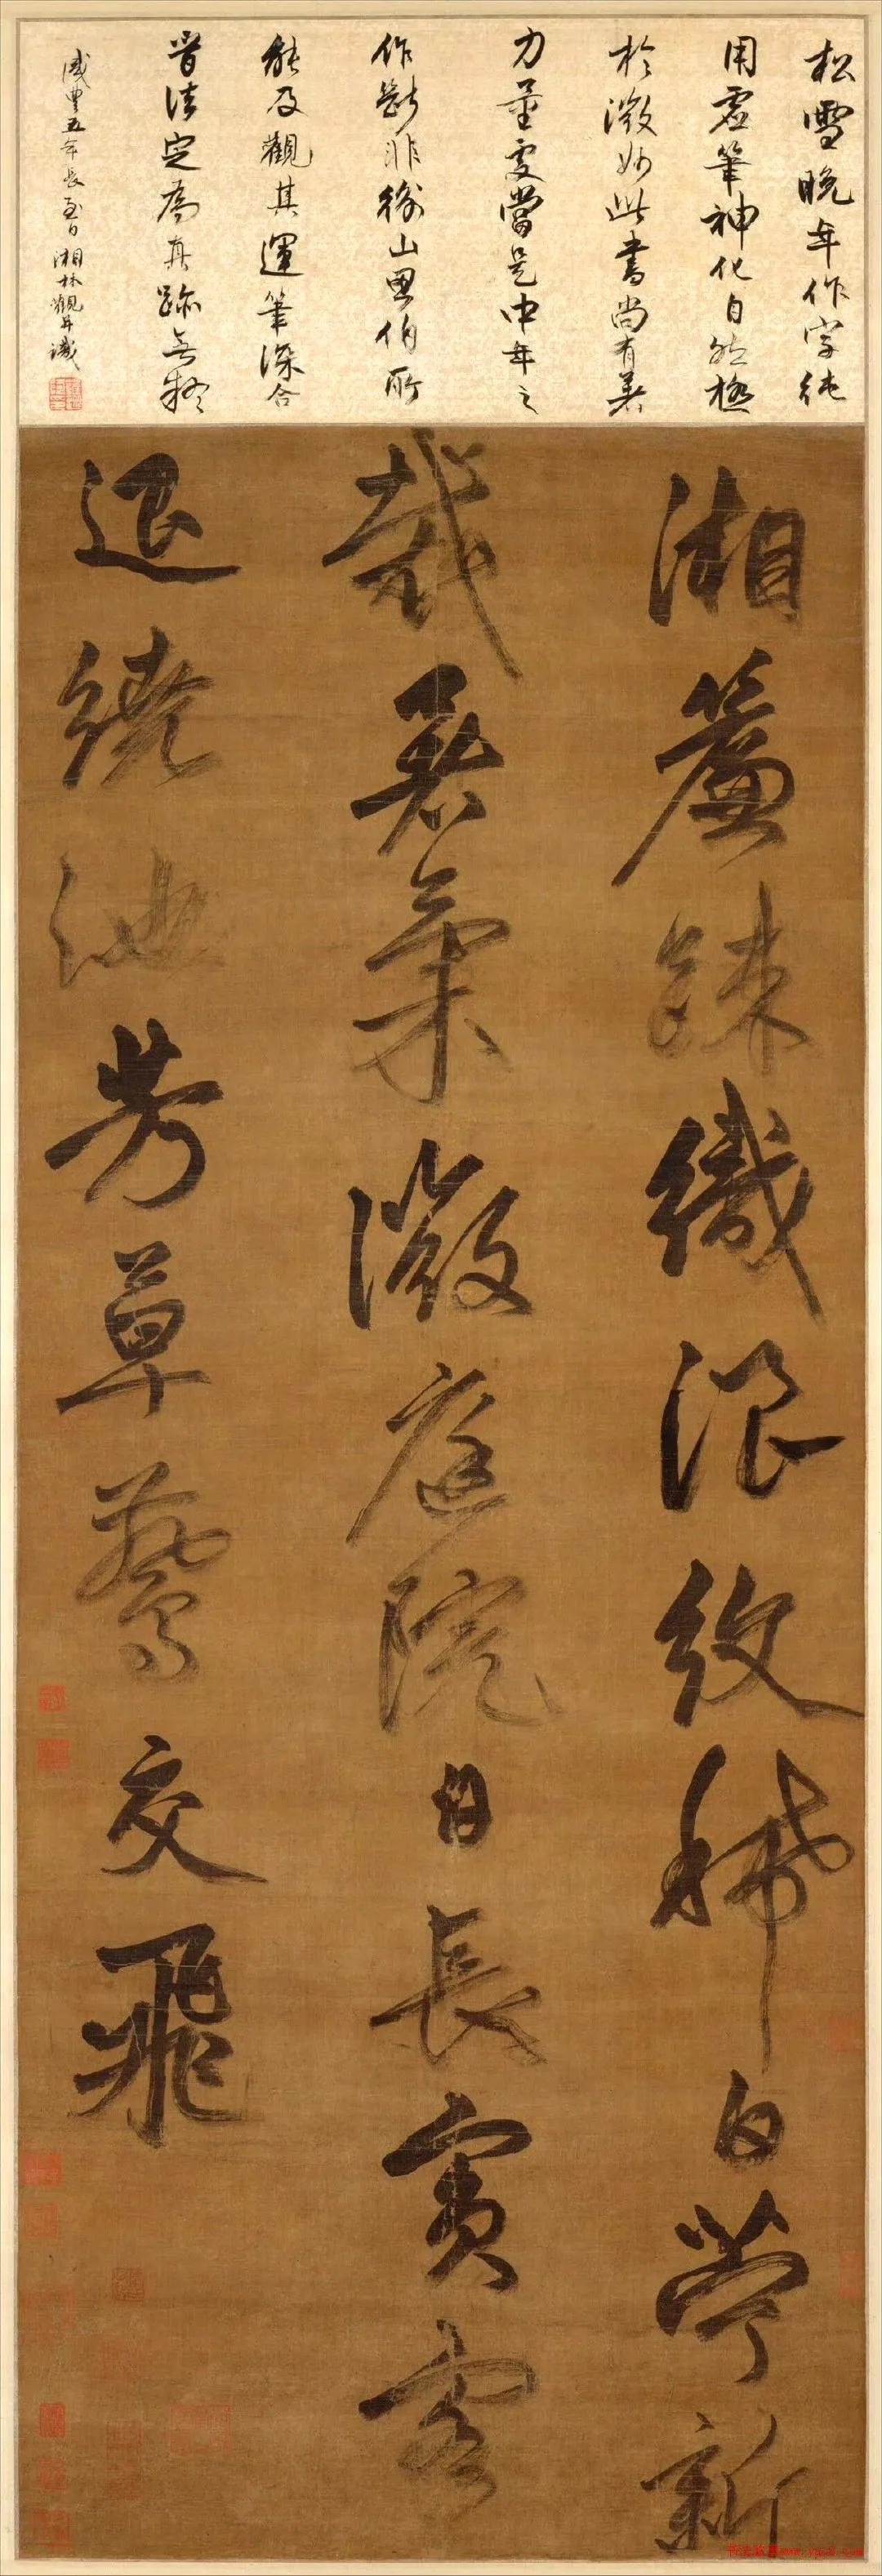 松雪晚年作字純
用虛筆神化自然極
於微妙此書尚有著
力量處當是中年之
作斷非衡山思伯所
能及觀其運筆深合
晉法定為真跡無疑
咸豐五年長至日湘林觀并識
湘簾疎織浪紋稀白苧新
裁暑氣微庭院日長賓客
退繞池芳草鶯交飛